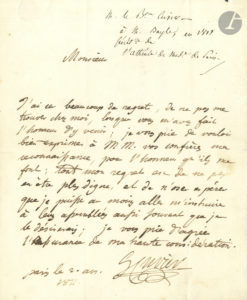 M. le Bon Cuvier
à M. Bayle, en 1821
de
l'athénée de Méd. de Paris.
Monsieur
J'ai eu beaucoup de regret, de ne pas me
trouver chez moi, lorsque vous m'avez fait
l'honneur d'y venir; je vous prie de vouloir
bien exprimer à MM. vos confrères ma
reconnaissance, pour l'honneur qu'ils me
font; tout mon regret est de ne pas
en être plus digne, et de n'oser espérer
que je puisse au moins aller m'instruire
à leurs assemblées aussi souvent que je
le désirerais; je vous prie d'agréer
l'assurance de ma haute considération.
G Cuvier
paris le 2 avr.